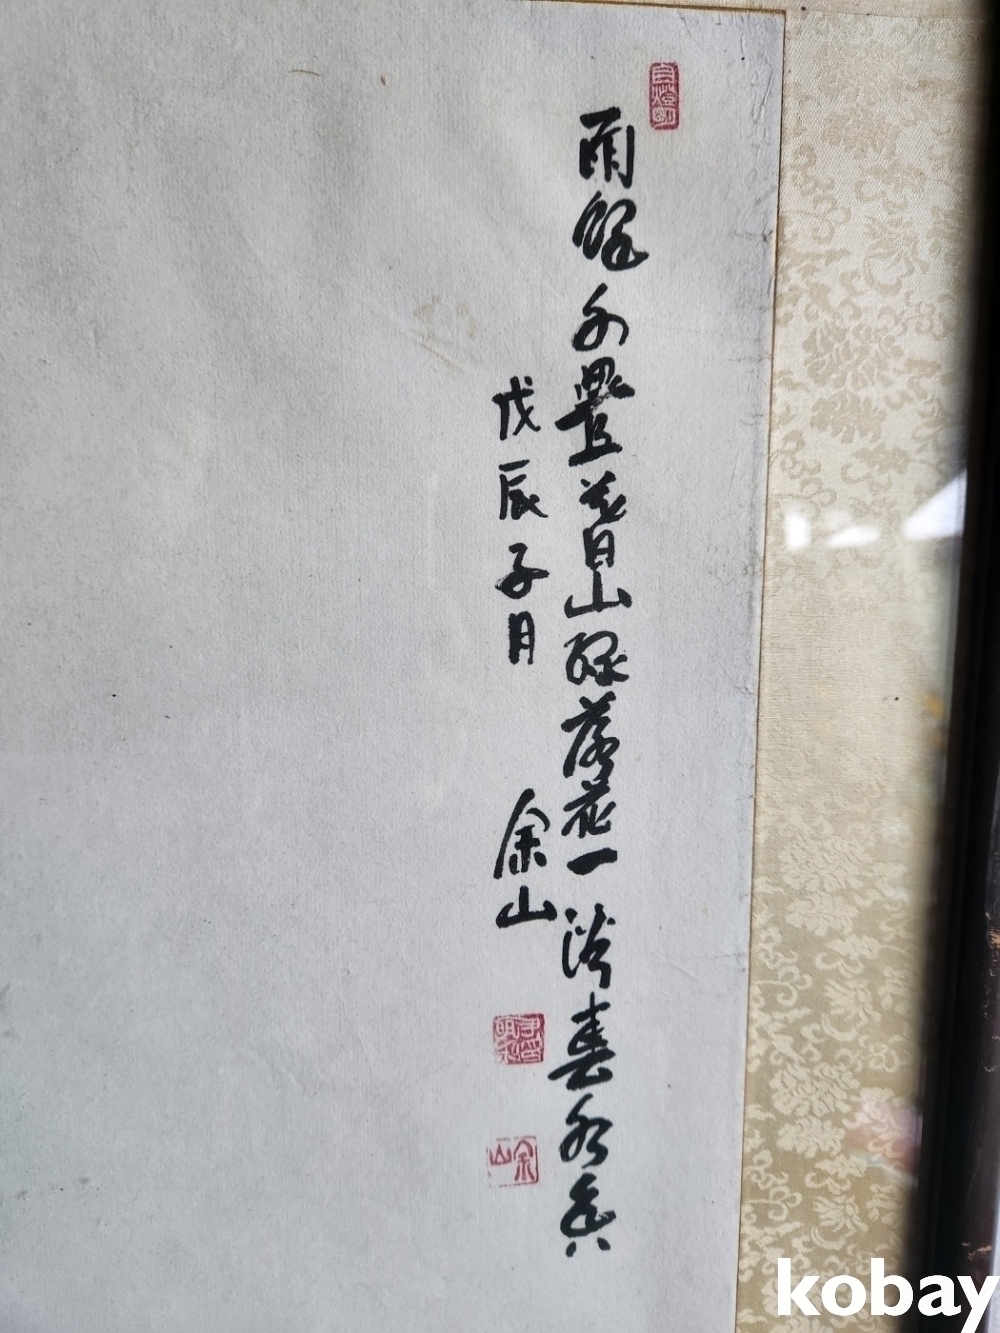 雨餘千疊暮山綠落花一溪春水香
戊辰子月 余山
余山
kobay